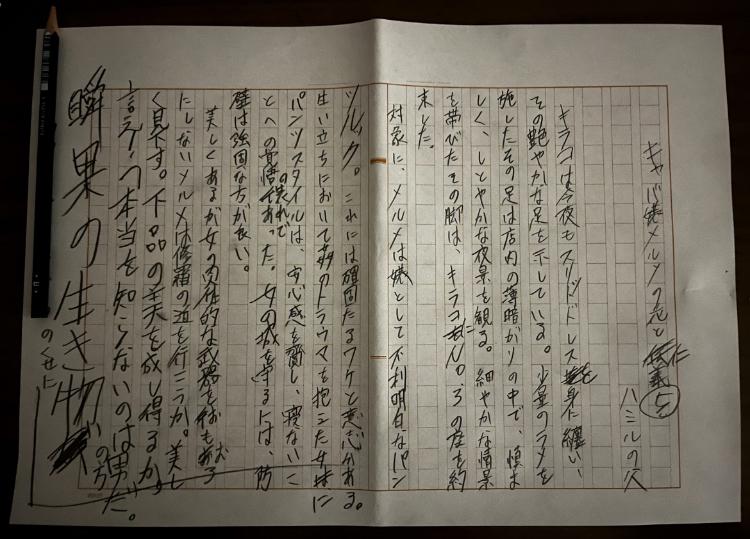 キャバ嬢メルメの花と仁義⑤
ハミルの穴
キラコは今夜もスリッドドレスを身に纏い、
その艶やかな足を示している。少量のラメを
施したその足は店内の薄暗がりの中で、慎ま
しく、しとやかな夜景を観る。細やかな情景
を帯びたその脚は、キラコにNo.3の座を約
束した。
対象に、メルメは嬢として不利明白なパン
ツルック。これには確固たるワケと意志がある。
生い立ちにおいて多のトラウマを抱えた女は
パンツスタイルは、安心感を齎し、寝ないこ
とへの覚悟の表れであった。女の城を守るには、防
壁は強固な方が良い。
美しくあるが女の肉体的な武器を何もあら
にしないメルメは修羅の道を行こうか。美し
く見下す。下品の美を成し得るか。
言えう本当を知らないのは男の方だ。
瞬果の生き物
のくせに